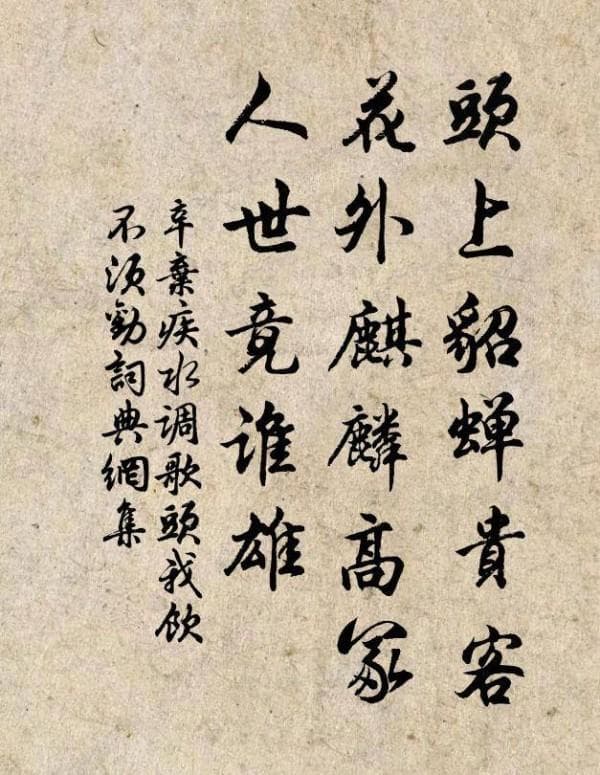 頭上貂蟬貴客
花外麒麟高冢
人世竟誰雄
辛棄疾水调歌頭我飲
不須勸詞典網集